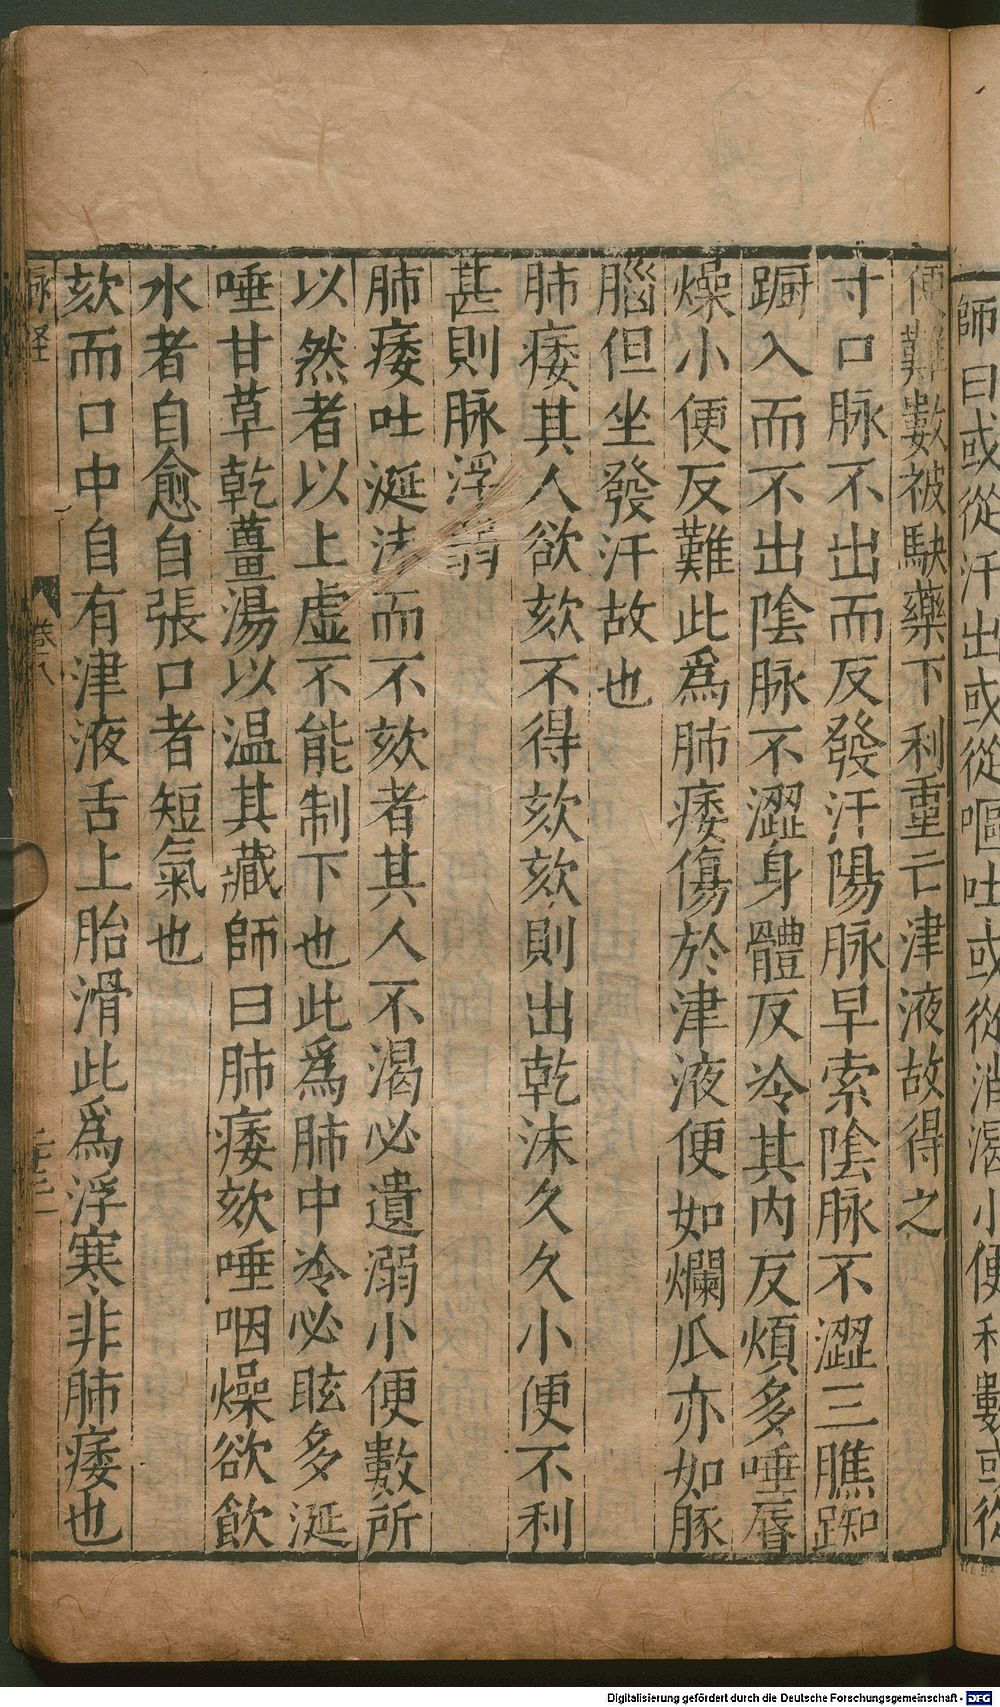 師曰或從汗出或從嘔吐或從消渴小便利數或從
便難數被駃藥下利重亡津液故得之
寸口脉不出而反發汗陽脉早索陰脉不澀三膲踟
蹰入而不出陰脉不澀身體反冷其内反煩多唾唇
燥小便反難此爲肺痿傷於津液便如爛瓜亦如豚
腦但坐發汗故也
肺痿其人欲欬不得欬欬則出乾沫久久小便不利
甚則脉浮弱
肺痿吐涎沫而不欬者其人不渴必遺溺小便數所
以然者以上虚不能制下也此爲肺中冷必眩多涎
唾甘草乾薑湯以温其藏師曰肺痿欬唾咽燥欲飲
水者自愈自張口者短氣也
欬而口中自有津液舌上胎滑此爲浮寒非肺痿也
脉經 卷八
Digitalisierung gefördert durch die Deutsche Forschungsgemeinschaft - DFG